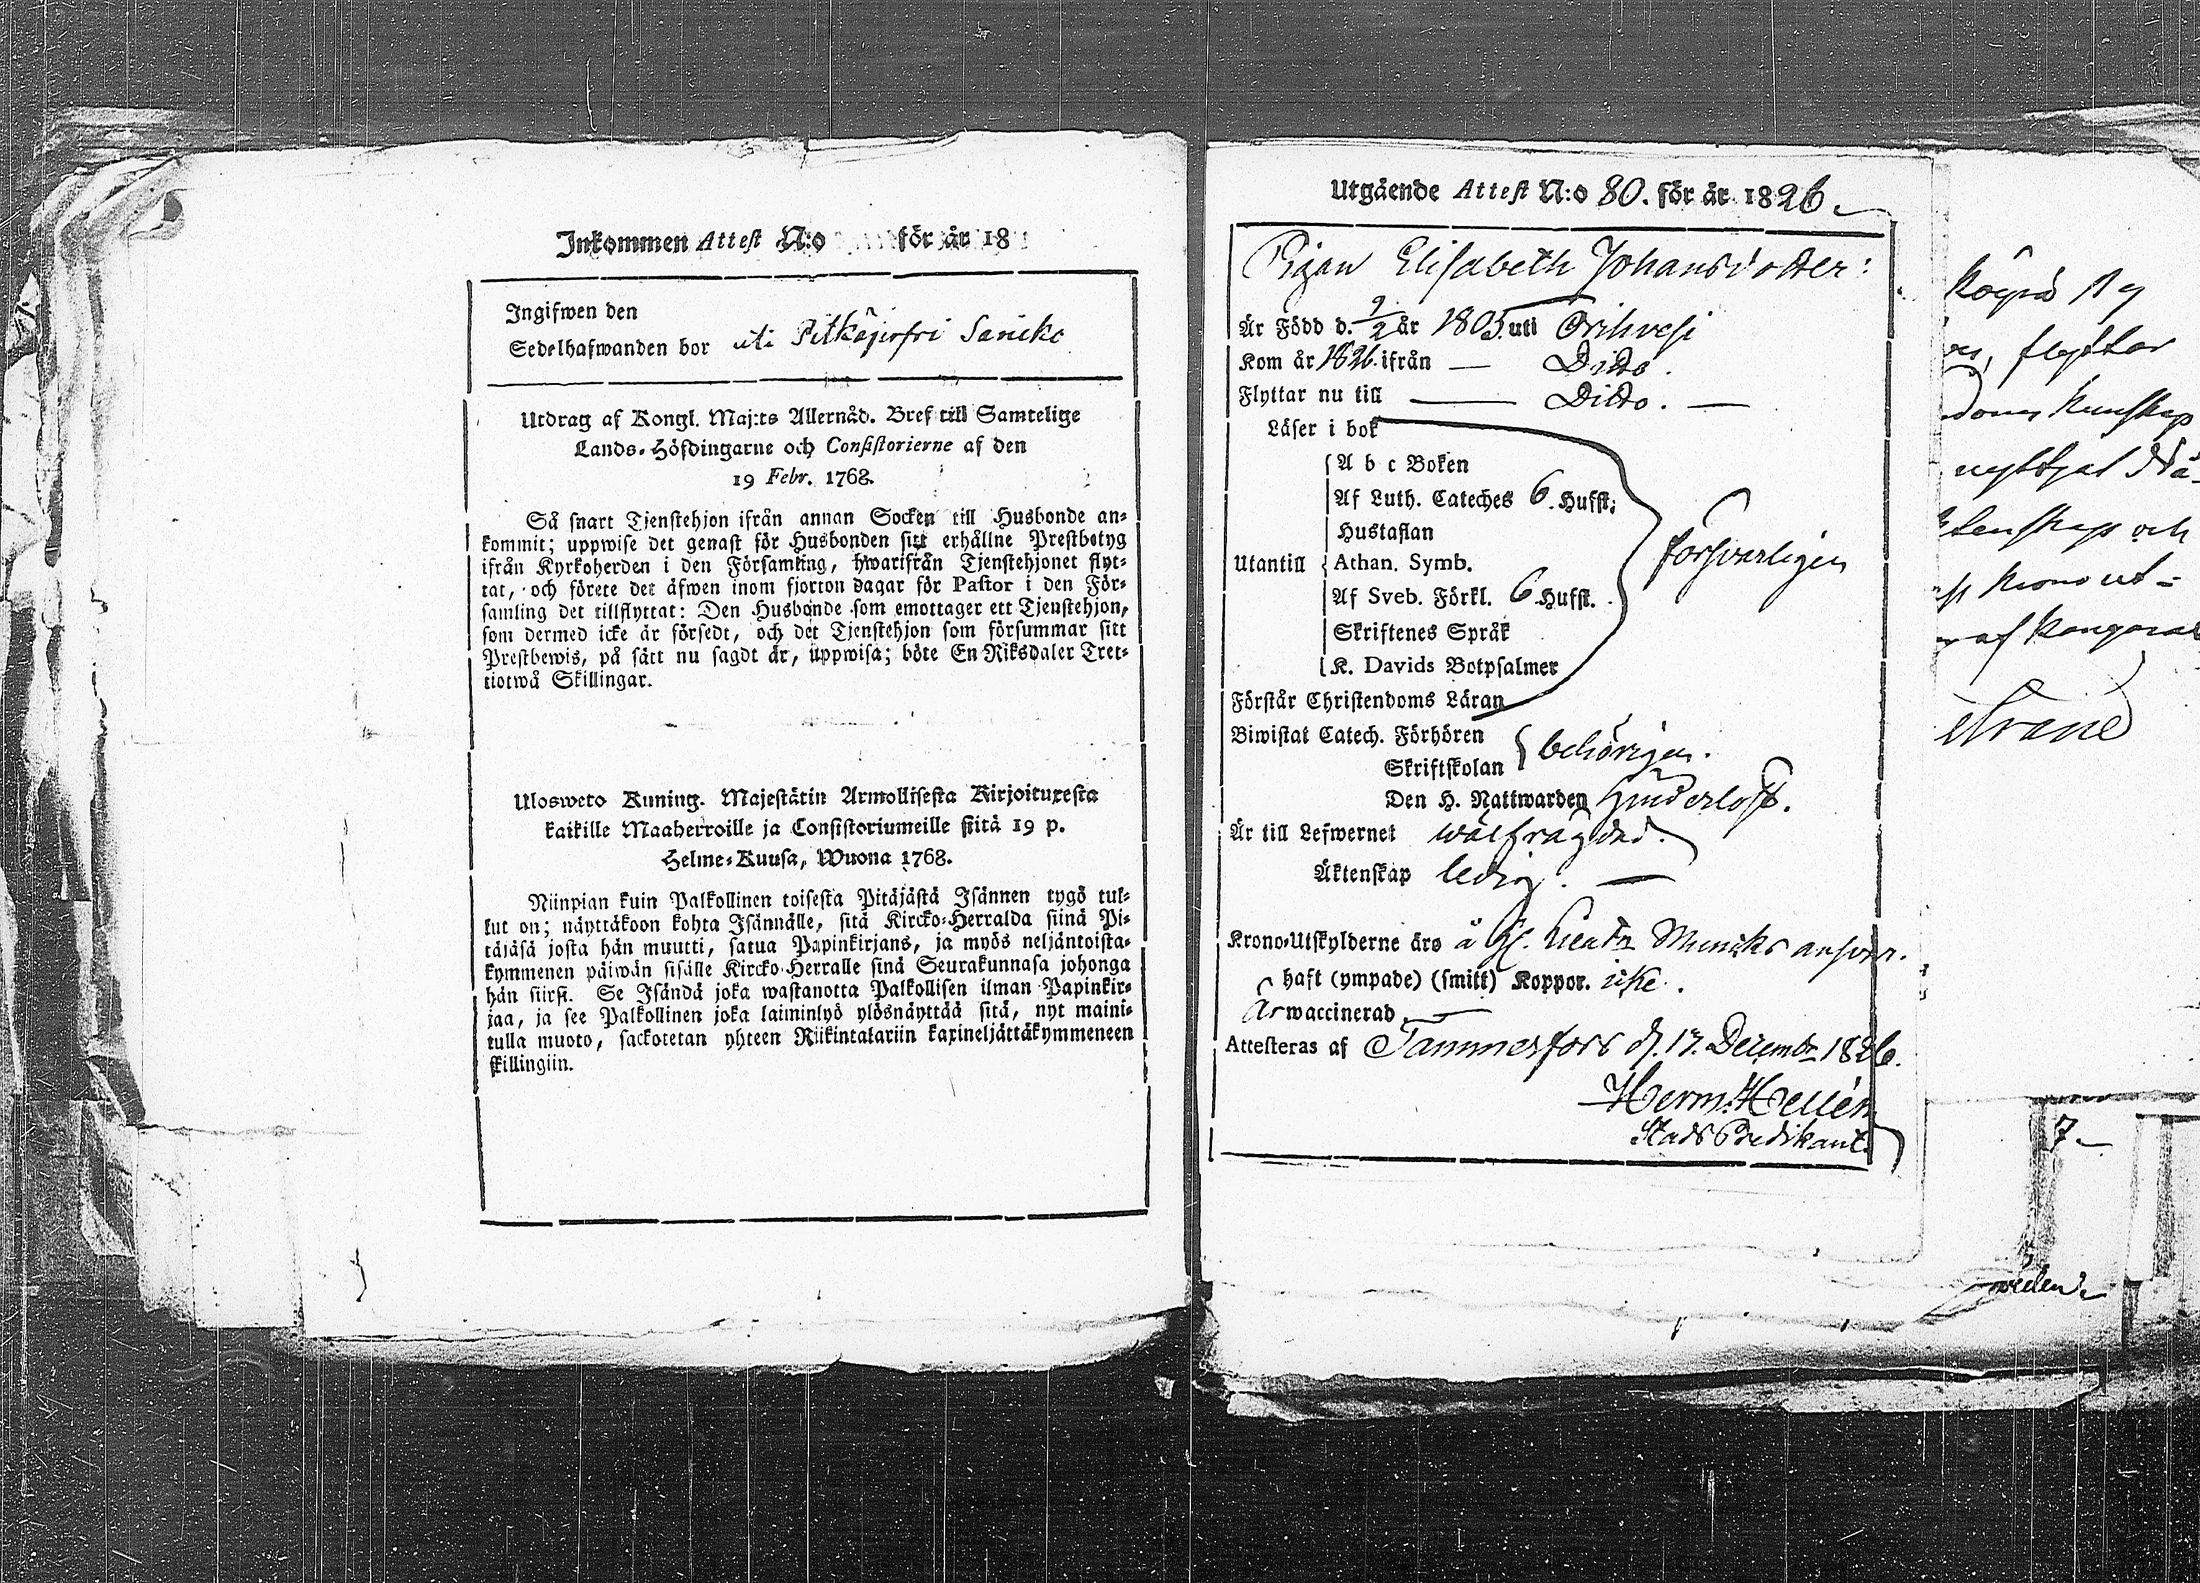 Inkommen Attest N:o för år 18
Ingifwen den
Sedelhafwanden bor uti Pitkäjerfvi Sarike
Utdrag af Kongl. Maj:ts Allernåd. Bref till Samtelige
Lands-Höfdingarne och Consistorierne af den
19 Febr. 1768.
Så snart Tjenstehjon ifrån annan Socken till Husbonde an-
kommit; uppwise det genast för Husbonden sitt erhållne Prestbetyg
ifrån Kyrkoherden i den Församling, hwarifrån Tjenstehjonet flyt-
tat, och förete det äfwen inom fjorton dagar för Pastor i den För-
samling det tillflyttat: Den Husbonde som emottager ett Tjenstehjon,
som dermed icke är försedt, och det Tjenstehjon som försummar sitt
Prestbewis, på sätt nu sagdt är, uppwisa; böte En Riksdaler Tret-
tiotwå Skillingar.
Ulosweto Kuning. Majestätin Armollisesta Kirjoituxesta
kaikille Maaherroille ja Consistoriumeille siitä 19 p.
Helme-Kuusa, Wuona 1768.
Niinpian kuin Palkollinen toisesta Pitäjästä Isännen tygö tul-
lut on; näyttäkoon kohta Isännälle, sitä Kircko-Herralda siinä Pi-
täjäsä josta hän muutti, satua Papinkirjans, ja myös neljäntoista-
kymmenen päiwän sisälle Kircko-Herralle sinä Seurakunnasa johonga
hän siirsi. Se Isändä joka wastanotta Palkollisen ilman Papinkir-
jaa, ja see Palkollinen joka laiminlyö ylösnäyttää sitä, nyt maini-
tulla muoto, sackotetan yhteen Riikintalariin kaxineljättäkymmeneen
skillingiin.
Utgående Attest N:o 80. för år 1826
Pigan Elisabeth Johansdotter:
Är Född d. 9/2 år 1805. uti Orihvesi
Kom år 1826. ifrån — Ditto.
Flyttar nu till — Ditto. —
Läser i bok
A b c Boken
Af Luth. Cateches 6. Hufst;
Hustaflan
Utantill Athan. Symb. försvarligen
Af Sveb. Förkl. 6 Hufst.
Skriftenes Språk
K. Davids Botpsalmer
Förstår Christendoms Läran
Biwistat Catech. Förhören
Skriftskolan behörigen.
Den H. Nattwarden hinderlöst.
Är till Lefwernet wälfrägdad.
Äktenskap ledig. —
Krono-Utskylderne äro å Lieutn Muncks answar.
haft (ympade) (smitt) Koppor. icke.
Är waccinerad
Attesteras af Tammerfors d. 17. Decembr 1826.
Herm. Hellén
Stads Predikant.
flyttar
kunskap
och
krono ut-
af
7